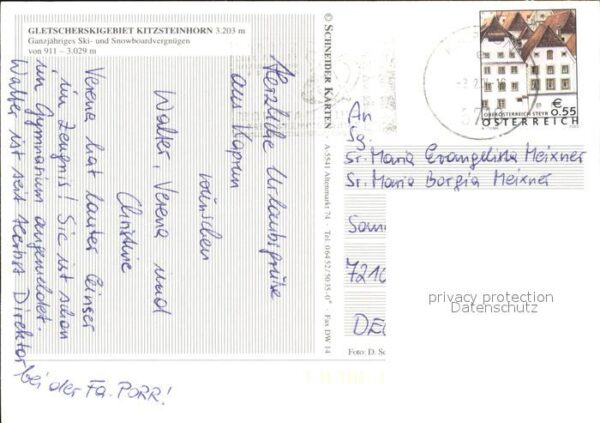 GLETSCHERSKIGEBIET KITZSTEINHORN 3.203 m
Ganzjähriges Ski- und Snowboardvergnügen
von 911 – 3.029 m
Herzliche Urlaubsgrüße
aus Kaprun
wünschen
Walter, Verena und
Christine
Verena hat lauter Einser
im Zeugnis! Sie ist schon
im Gymnasium angemeldet.
Walter ist seit Herbst Direktor
bei der Fa. PORR!
© SCHNEIDER KARTEN · A-5541 Altenmarkt 74 · Tel. 06452/5035-0* · Fax DW 14
OBERÖSTERREICH STEYR
€ 0.55
ÖSTERREICH
An
Sg.
Sr. Maria Evangelista Meixner
Sr. Maria Borgia Meixner
7210
privacy protection
Datenschutz
Foto: D.